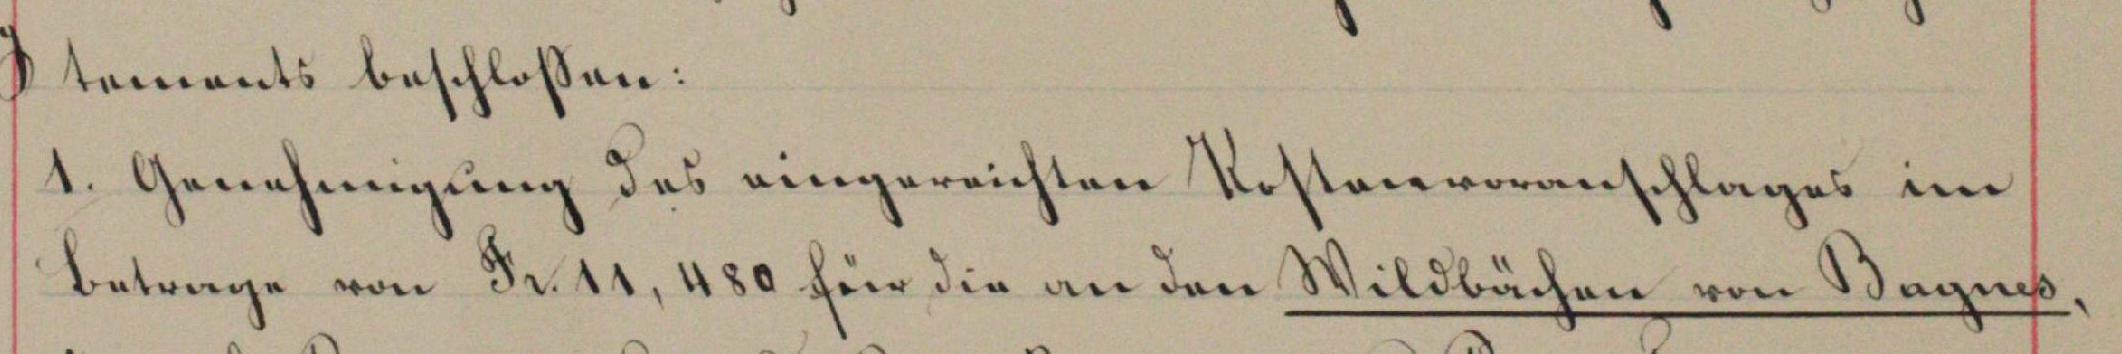 tements beschloßen:
1. Genehmigung des eingereichten Kostenvoranschlages im
Betrage von Fr. 11,480 für die an den Wildbächen von Bagnes,